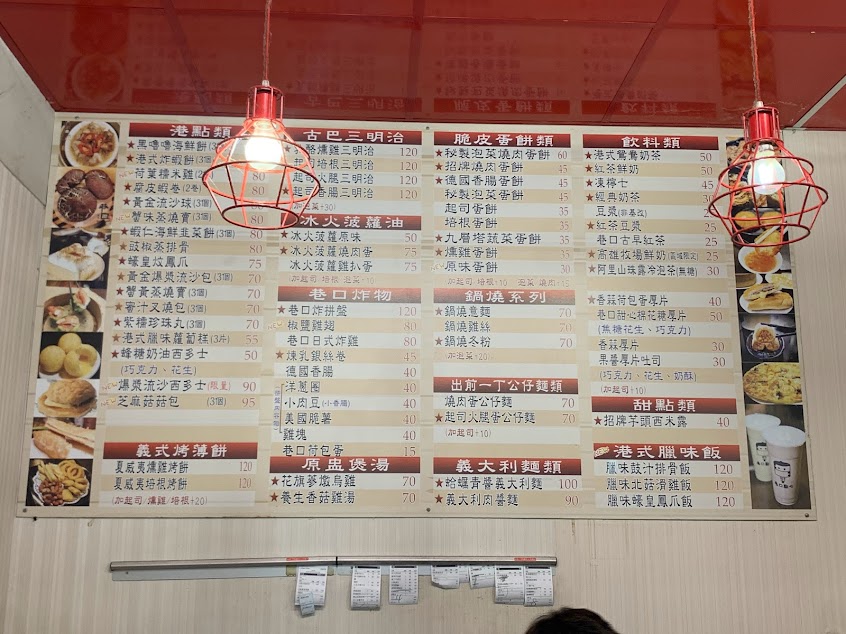 港點類
★黑嚕嚕海鮮餅(3個)
★港式炸蝦餅(3個)
荷葉糯米雞 80
★腐皮蝦卷(2卷) 80
★黃金流沙球(3個) 80
★蟹味蒸燒賣(3個) 80
★蝦仁海鮮韭菜餅(3個) 80
★豉椒蒸排骨 80
★蠔皇炆鳳爪 75
★黃金爆漿流沙包(3個) 70
★蟹黃蒸燒賣(3個) 70
★蜜汁叉燒包(3個) 70
★紫糯珍珠丸(3個) 70
★港式臘味蘿蔔糕(3片) 55
★蜂糖奶油西多士 50
(巧克力、花生)
爆漿流沙西多士(限量) 90
★芝麻菇菇包(3個) 95
義式烤薄餅
夏威夷燻雞烤餅 120
夏威夷培根烤餅 120
(加起司/燻雞/培根+20)
古巴三明治
燻雞三明治 120
起司培根三明治 120
起司火腿三明治 120
起司香腸三明治 120
冰火菠蘿油
★冰火菠蘿原味 50
★冰火菠蘿燒肉蛋 75
冰火菠蘿雞扒蛋 75
巷口炸物
★巷口炸拼盤 120
椒鹽雞翅 80
巷口日式炸雞 80
★煉乳銀絲卷 45
德國香腸 40
洋蔥圈 40
小肉豆(小香腸) 40
美國脆薯 40
雞塊 40
巷口荷包蛋 15
原盅煲湯
★花旗蔘燉烏雞 70
★養生香菇雞湯 70
脆皮蛋餅類
★秘製泡菜燒肉蛋餅 60
★招牌燒肉蛋餅 45
★德國香腸蛋餅 45
秘製泡菜蛋餅 45
起司蛋餅 35
培根蛋餅 35
★九層塔蔬菜蛋餅 35
★燻雞蛋餅 35
原味蛋餅 30
鍋燒系列
★鍋燒意麵 70
★鍋燒雞絲 70
★鍋燒冬粉 70
(加泡菜+20)
出前一丁公仔麵類
燒肉蛋公仔麵 70
★起司火腿蛋公仔麵 70
(加起司+10)
義大利麵類
★蛤蠣青醬義大利麵 100
★義大利肉醬麵 90
飲料類
★港式鴛鴦奶茶 50
★紅茶鮮奶 50
★凍檸七 45
★經典奶茶 30
豆漿(非基改) 25
★紅茶豆漿 25
★巷口古早紅茶 25
★高雄牧場鮮奶(高域限定) 25
★阿里山珠露冷泡茶(無糖) 30
★香蒜荷包蛋厚片 40
巷口甜心棉花糖厚片 50
(焦糖花生、巧克力)
香蒜厚片 30
果醬厚片吐司 30
(巧克力、花生、奶酥)
(加起司+10)
甜點類
★招牌芋頭西米露 40
港式臘味飯
臘味豉汁排骨飯 120
臘味北菇滑雞飯 120
臘味蠔皇鳳爪飯 120